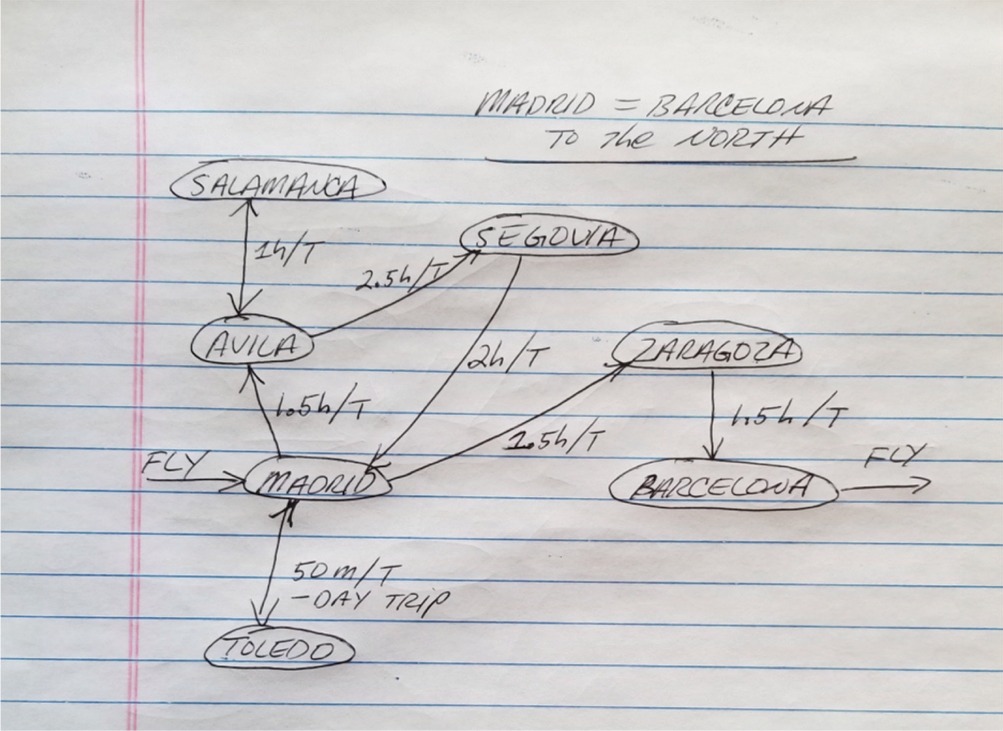 MADRID = BARCELONA
TO THE NORTH
SALAMANCA
1h/T
SEGOVIA
2.5h/T
AVILA
2h/T
ZARAGOZA
1.5h/T
1.5h/T
1.5h/T
FLY
MADRID
BARCELONA
FLY
50m/T
-DAY TRIP
TOLEDO